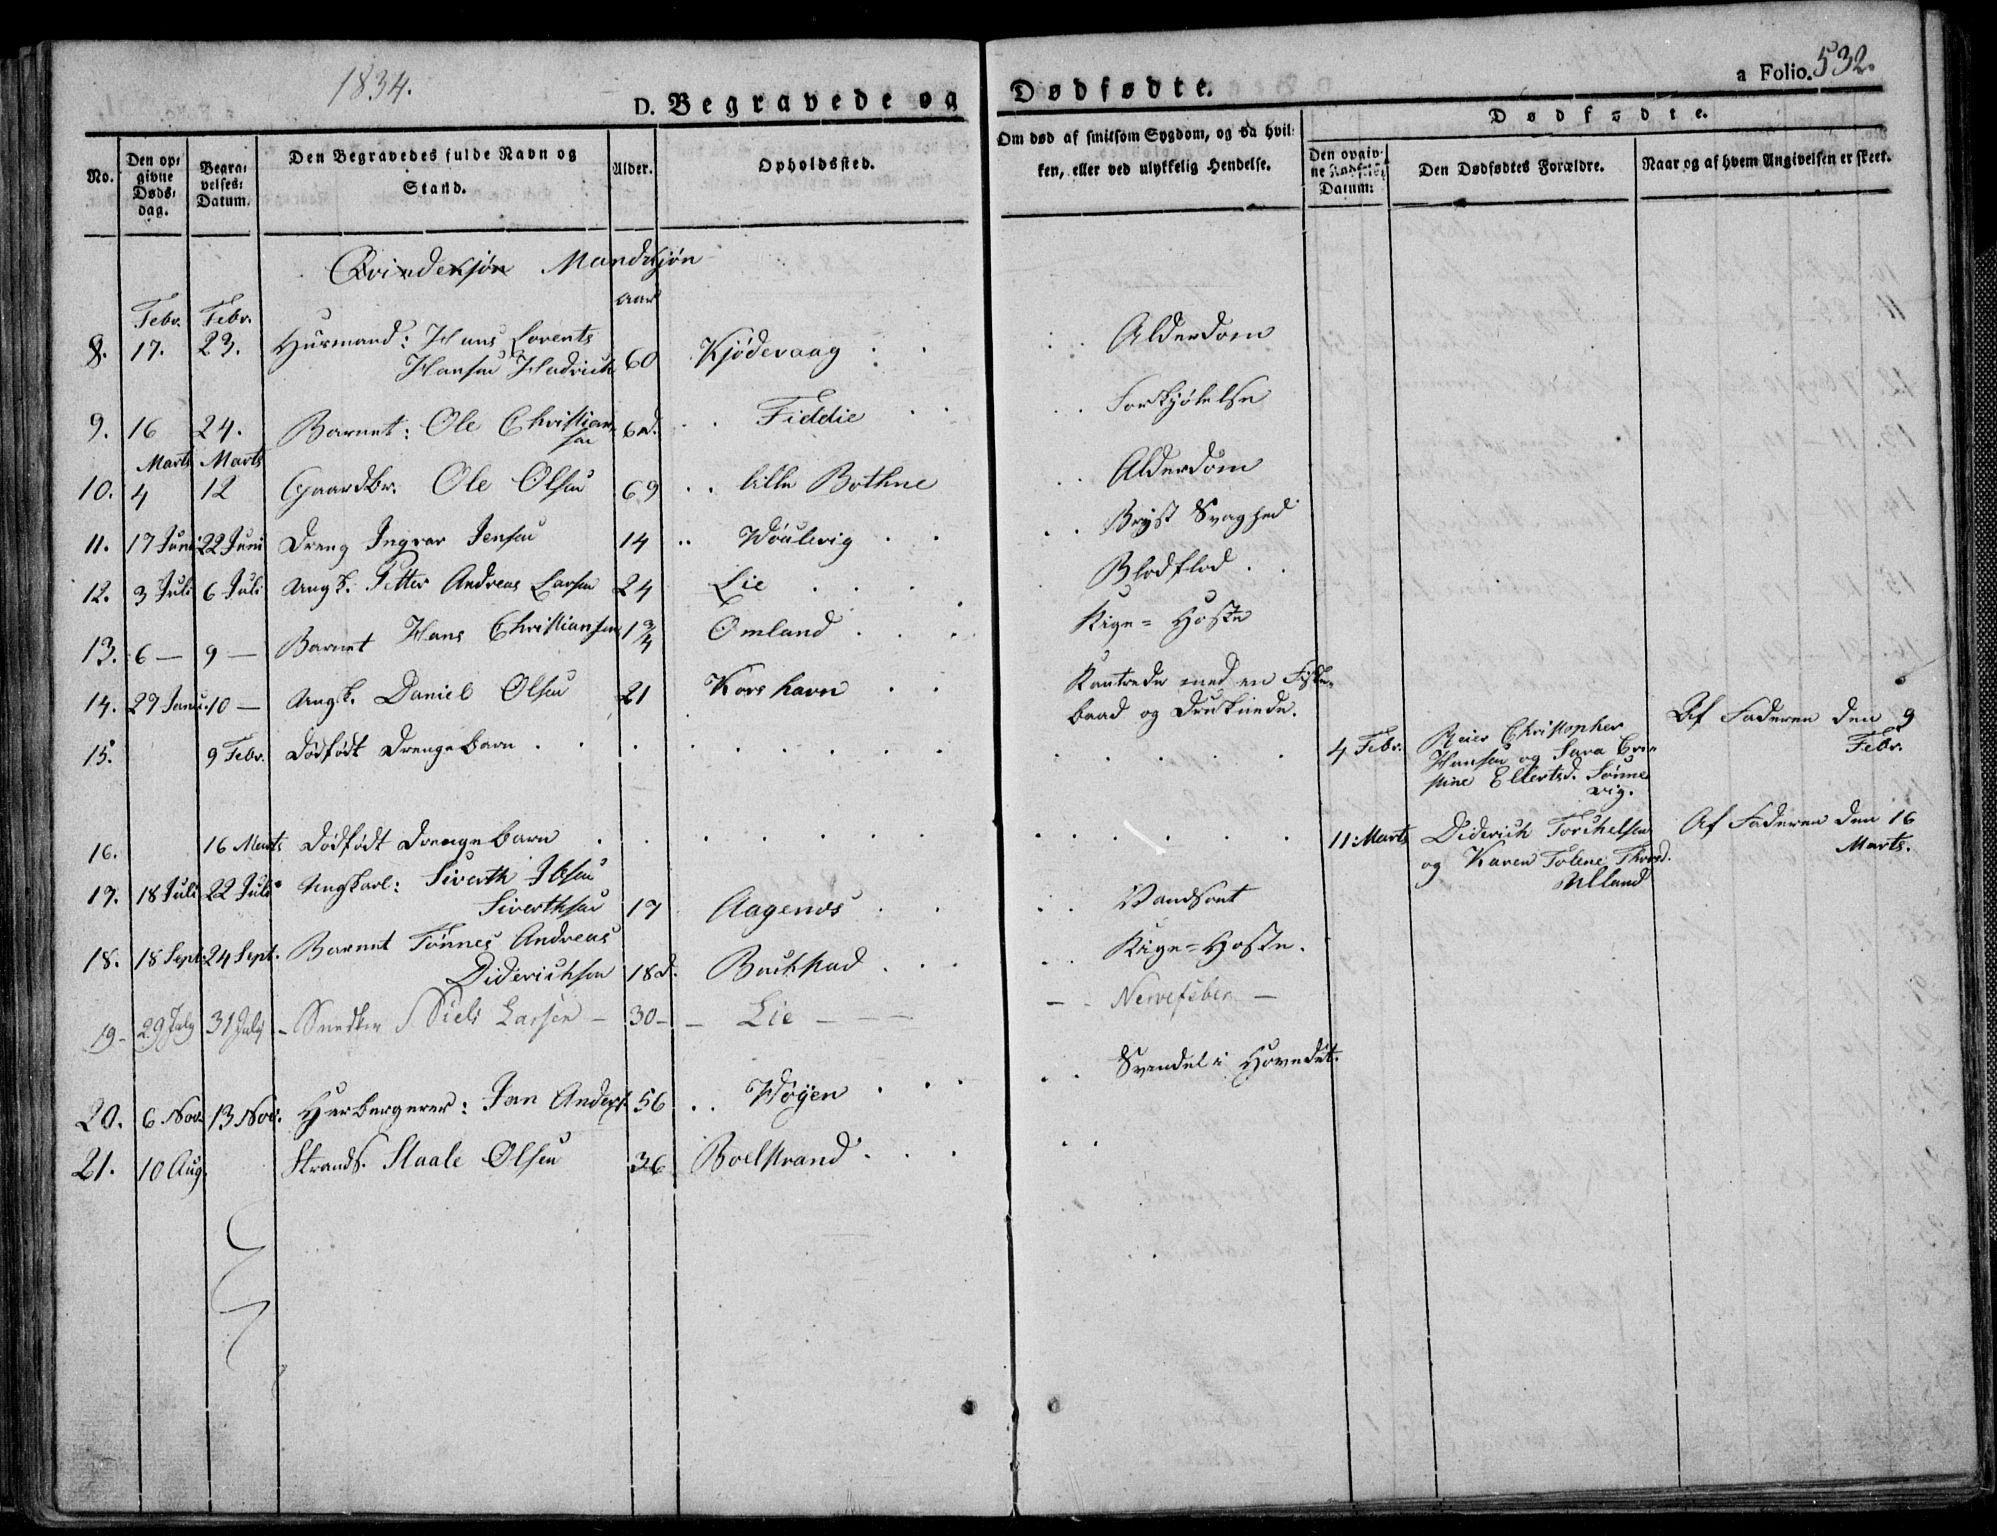 1834.
D. Begravede og Dødfødte.
a Folio. 532.
No.
Den op-
givne
Døds-
dag.
Begra-
velses-
Datum.
Den Begravedes fulde Navn og
Stand.
Alder.
Opholdssted.
Om død af smitsom Sygdom, og da hvil-
ken, eller ved ulykkelig Hendelse.
Dødfødte.
Den opgiv-
ne
Datum:
Den Dødfødtes Forældre.
Naar og af hvem Angivelsen er skeet.
Qvindekjøn Mandkjøn
aar
Febr. Febr.
8. 17. 23. Huusmand: Hans Lorents
Hansen 60 Kjødevaag . . Alderdom
9. 16 24. Barnet: Ole Christian-
sen 6 d. . . Fiddie . . Forkjølelse
Marts Marts
10. 4 12 Gaardbr. Ole Olsen 69 . . lille Bothne . . Alderdom
11. 17 Juni 22 Juni Dreng Ingvar Jensen 14 . . . . Bryst Svaghed
12. 3 Juli 6 Juli Ungk. Petter Andreas Larsen 24 Lie . . . Blodflod .
13. 6 — 9 — Barnet Hans Christiansen 1 3/4 Omland . . . Kige-Hoste
14. 10 — Ungk. Daniel Olsen 21 Korshavn . . Kantrede med en Fiske-
baad og Druknede.
15. 9 Febr. Dødfødt Drengebarn . . . 4 Febr. Reier Christopher
Hansen og Sara Chri-
stine Ellertsd. Sønne-
vig.
Af Faderen den 9
Febr.
16. 16 Marts Dødfødt Drengebarn . . . 11 Marts Diderich Torkelsen
og Karen Tolene Thord.
Ulland
Af Faderen den 16
Marts.
17. 18 Juli 22 Juli Ungkarl: Siverth Ibsen
Siverthsen 17 Aagenæs . . . Vandsoot
18. 18 Sept. 24 Sept. Barnet Tønnes Andreas
Diderichsen 18 d. . . . Kige-Hoste.
19 - 29 July 31 July - Snedker Niels Larsen - 30 - - Lie - - - Nervefeber -
20. 6 Nov. 13 Nov. Herbergerer: Jan Anders. 56 . . . . . Svindel i Hovedet.
21. 10 Aug. Strands. Staale Olsen 36 Boelstrand . . .